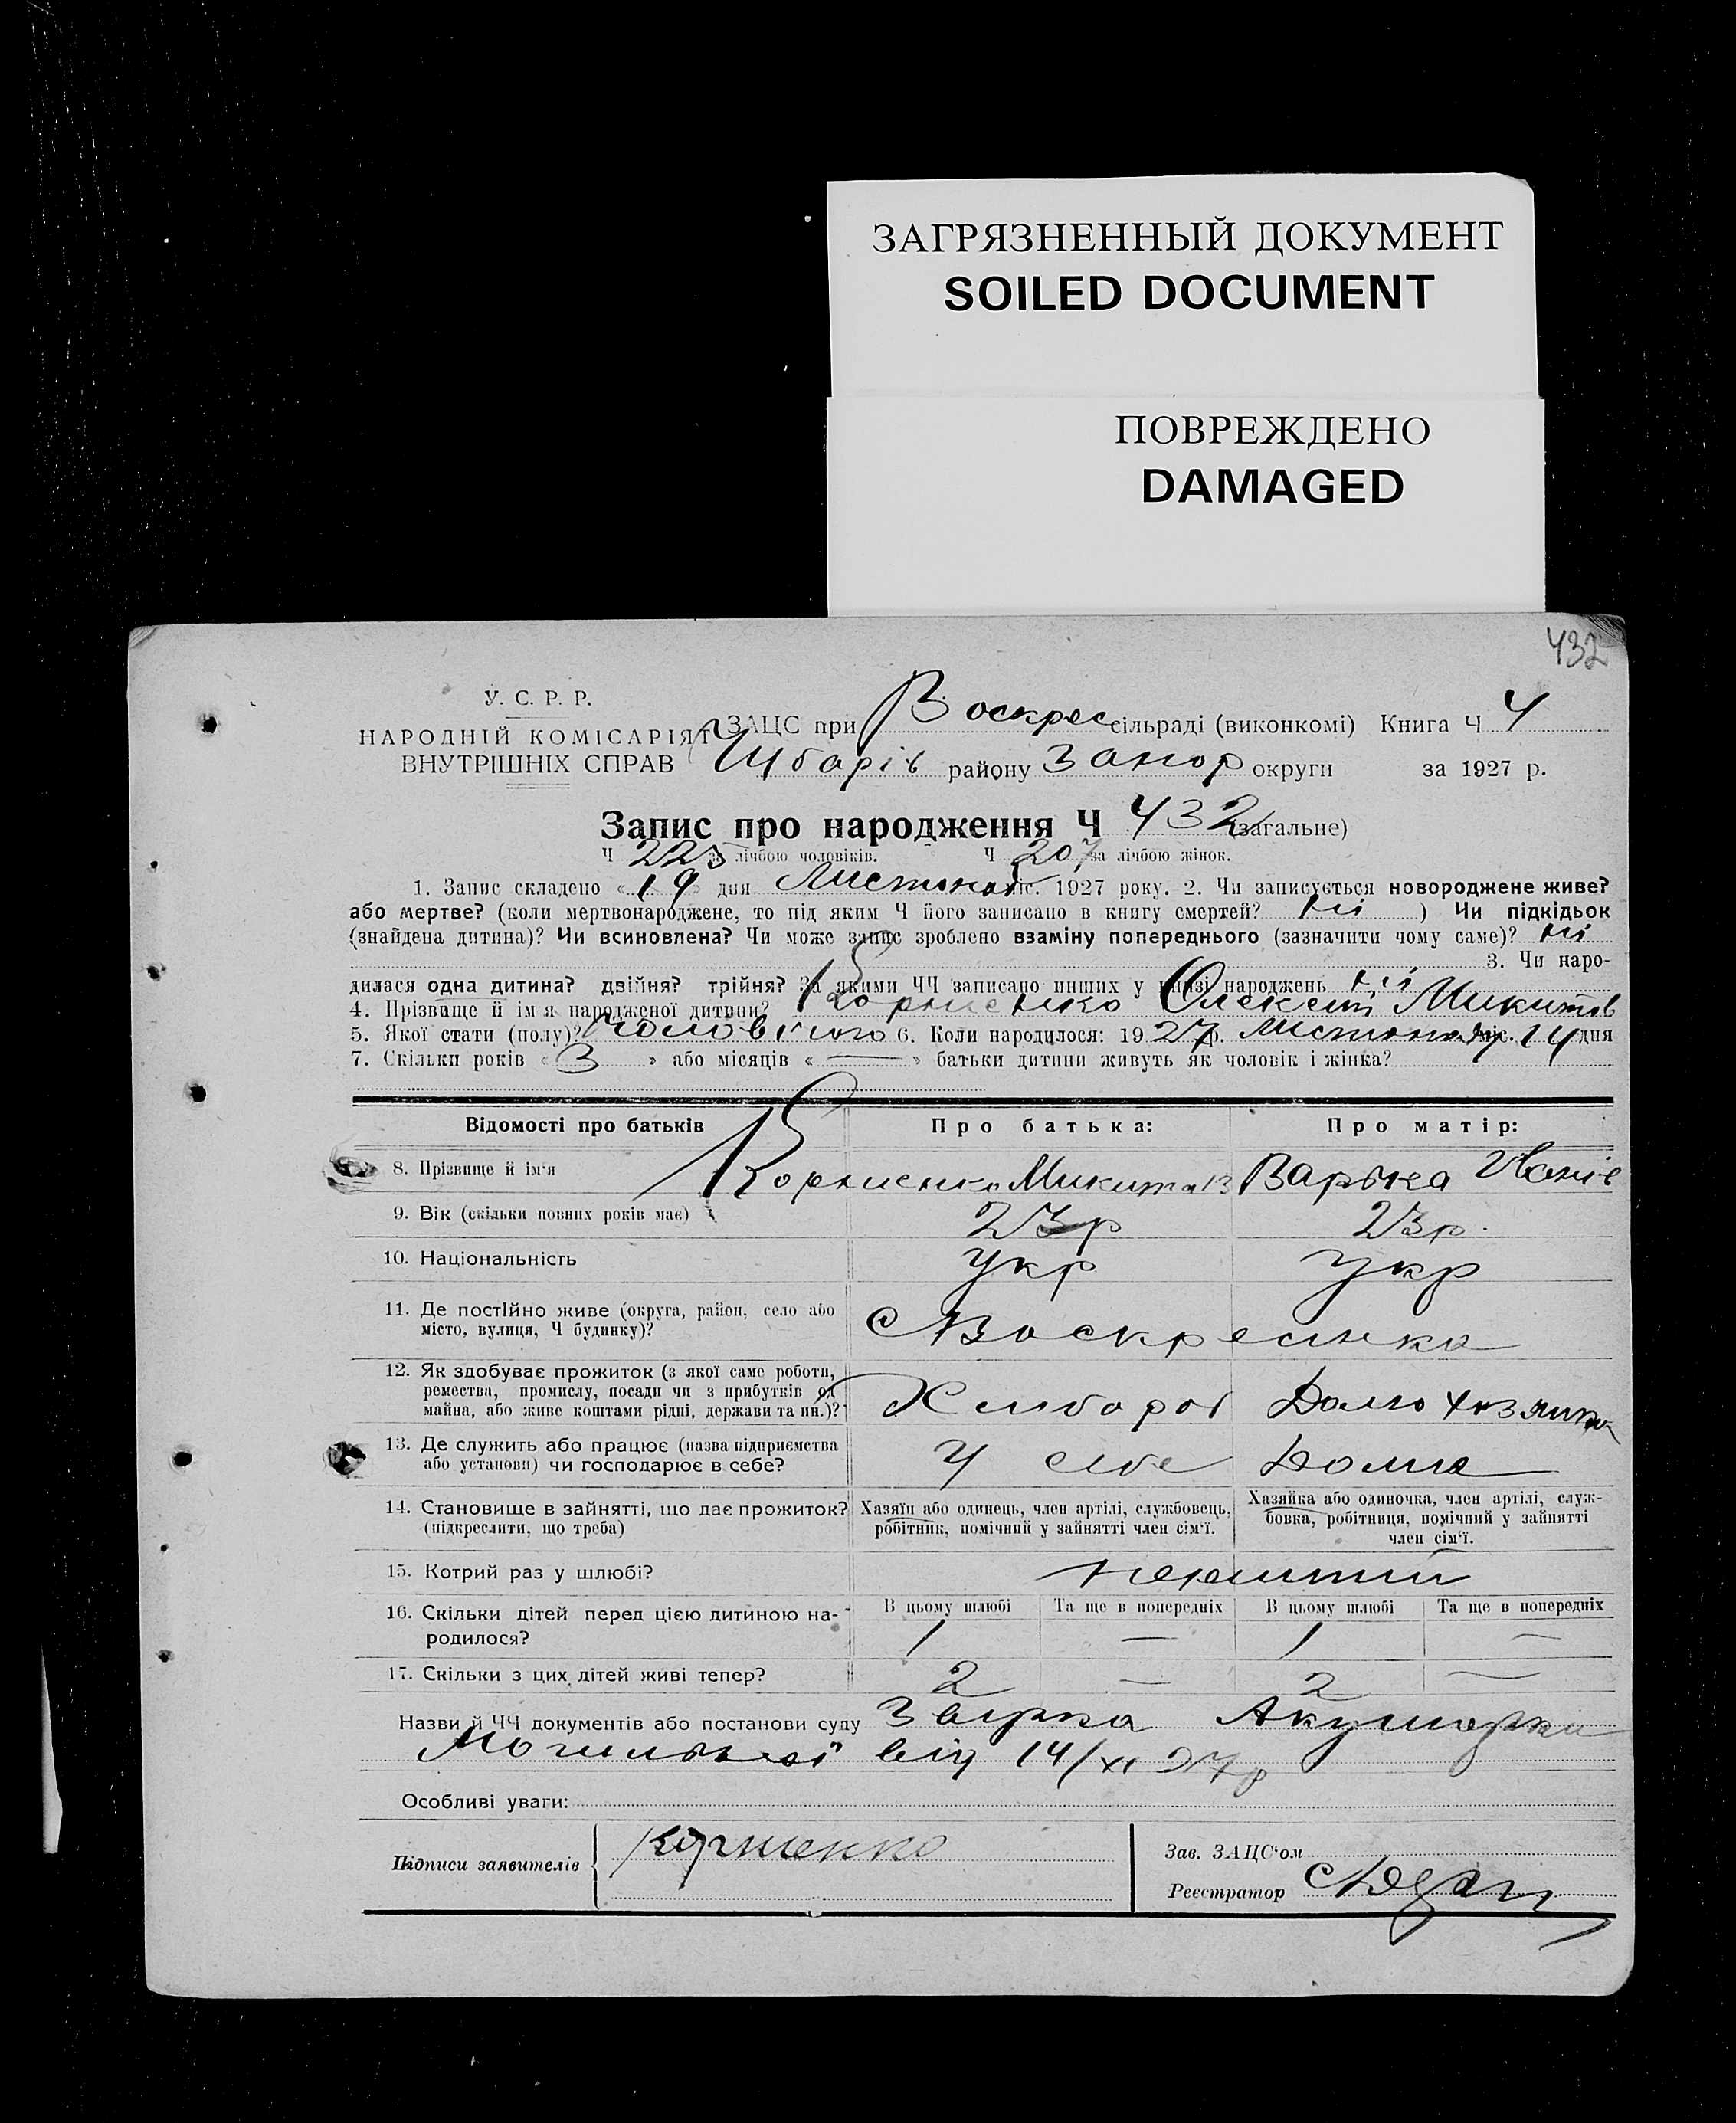 ЗАГРЯЗНЕННЫЙ ДОКУМЕНТ
SOILED DOCUMENT
ПОВРЕЖДЕНО
DAMAGED
432
У. С. Р. Р.
НАРОДНІЙ КОМІСАРІЯТ
ВНУТРІШНІХ СПРАВ
ЗАЦС при Воскрес сільраді (виконкомі) Книга Ч 4
району Запор округи за 1927 р.
Запис про народження Ч 432 (загальне)
Ч 225 за лічбою чоловіків. Ч 207 за лічбою жінок.
1. Запис складено « 19 » дня Листопад міс. 1927 року. 2. Чи записується новороджене живе?
або мертве? (коли мертвонароджене, то під яким Ч його записано в книгу смертей? ні ) Чи підкідьок
(знайдена дитина)? Чи всиновлена? Чи може запис зроблено взаміну попереднього (зазначити чому саме)? ні
3. Чи наро-
дилася одна дитина? двійня? трійня? За якими ЧЧ записано инших у книзі народжень ні
4. Прізвище й ім'я народженої дитини? Корниенко Олексій Микитов
5. Якої стати (полу)? чоловічого 6. Коли народилося: 1927 р. листопаду міс. 14 дня
7. Скільки років « 3 » або місяців « — » батьки дитини живуть як чоловік і жінка?
Відомості про батьків Про батька: Про матір:
8. Прізвище й ім'я Корниенко Микита Варька Іванів
9. Вік (скільки повних років має) 23р 23р.
10. Національність укр укр
11. Де постійно живе (округа, район, село або
місто, вулиця, Ч будинку)? с Воскресенка
12. Як здобуває прожиток (з якої саме роботи,
ремества, промислу, посади чи з прибутків од
майна, або живе коштами рідні, держави та ин.)? Хлібороб Домохозяйка
13. Де служить або працює (назва підприємства
або установи) чи господарює в себе? У себе Дома
14. Становище в зайнятті, що дає прожиток?
(підкреслити, що треба)
Хазяїн або одинець, член артілі, службовець,
робітник, помічний у зайнятті член сім'ї.
Хазяйка або одиночка, член артілі, служ-
бовка, робітниця, помічний у зайнятті
член сім'ї.
15. Котрий раз у шлюбі?
16. Скільки дітей перед цією дитиною на-
родилося?
В цьому шлюбі Та ще в попередніх В цьому шлюбі Та ще в попередніх
1 — 1 —
17. Скільки з цих дітей живі тепер? 2 — 2 —
Назви й ЧЧ документів або постанови суду Акушерки
від 14/XI 27р
Особливі уваги:
Підписи заявителів Корниенко
Зав. ЗАЦС'ом
Реєстратор